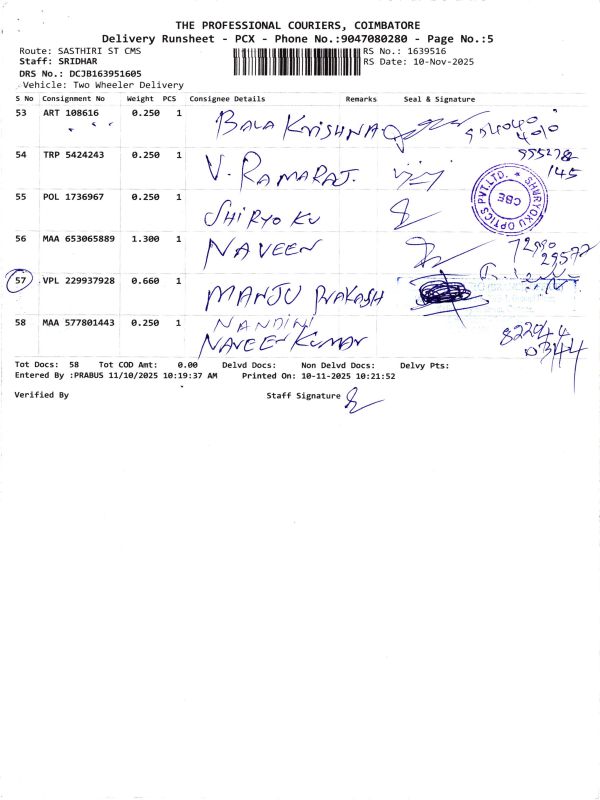 THE PROFESSIONAL COURIERS, COIMBATORE
Delivery Runsheet - PCX - Phone No.:9047080280 - Page No.:5
Route: SASTHIRI ST CMS
RS No.: 1639516
Staff: SRIDHAR
RS Date: 10-Nov-2025
DRS No.: DCJB163951605
Vehicle: Two Wheeler Delivery
S No Consignment No Weight PCS Consignee Details Remarks Seal & Signature
53 ART 108616 0.250 1 BALA KRISHNA
54 TRP 5424243 0.250 1 V. RAMARAJ.
145
SHURYOKU OPTICS PVT.LTD. * CBE
55 POL 1736967 0.250 1 SHIRYO KU
56 MAA 653065889 1.300 1 NAVEEN
57 VPL 229937928 0.660 1 MANJU PRAKASH
58 MAA 577801443 0.250 1 NANDINI
NAVEEN KUMAR
Tot Docs: 58 Tot COD Amt: 0.00 Delvd Docs: Non Delvd Docs: Delvy Pts:
Entered By :PRABUS 11/10/2025 10:19:37 AM Printed On: 10-11-2025 10:21:52
Verified By Staff Signature